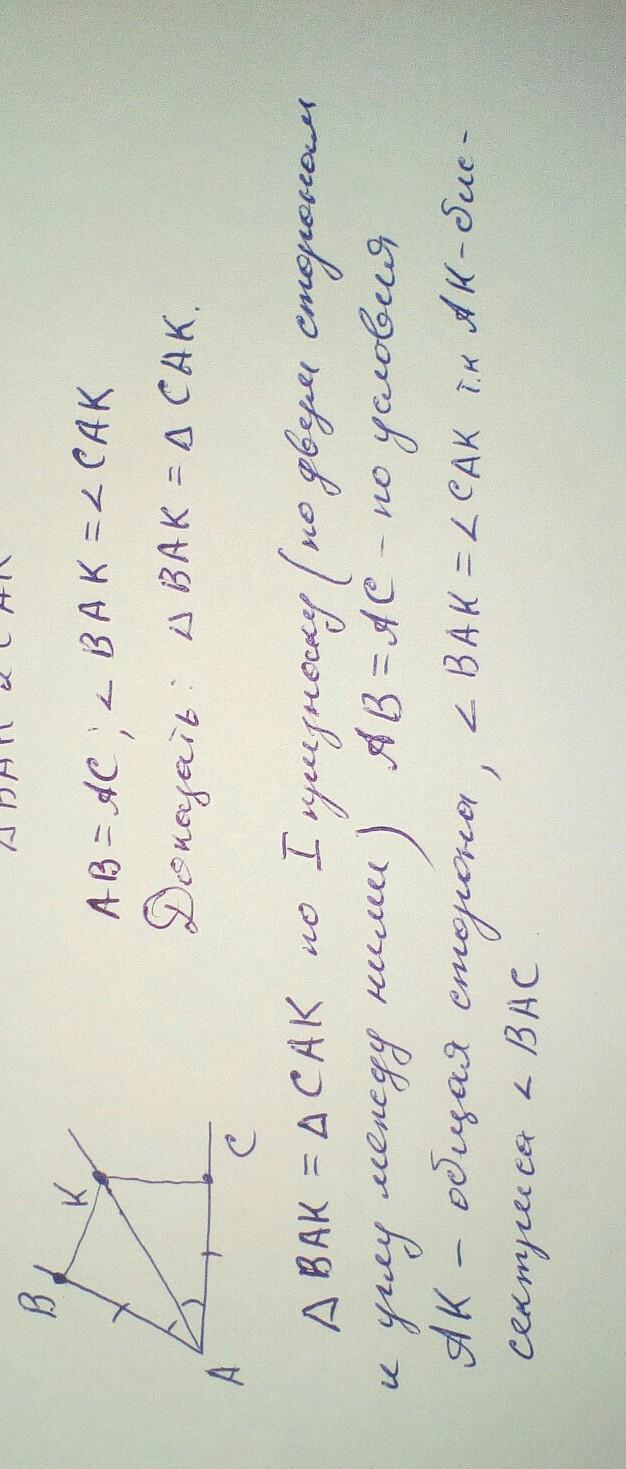 ΔВАК и САК
AB = AC; ∠ BAK = ∠ CAK
Доказать: Δ BAK = Δ CAK.
B
K
A
C
Δ BAK = Δ CAK по I признаку (по двум сторонам
и углу между ними) AB = AC – по условия
AK – общая сторона, ∠ BAK = ∠ CAK т.к AK – бис-
сектриса ∠ BAC